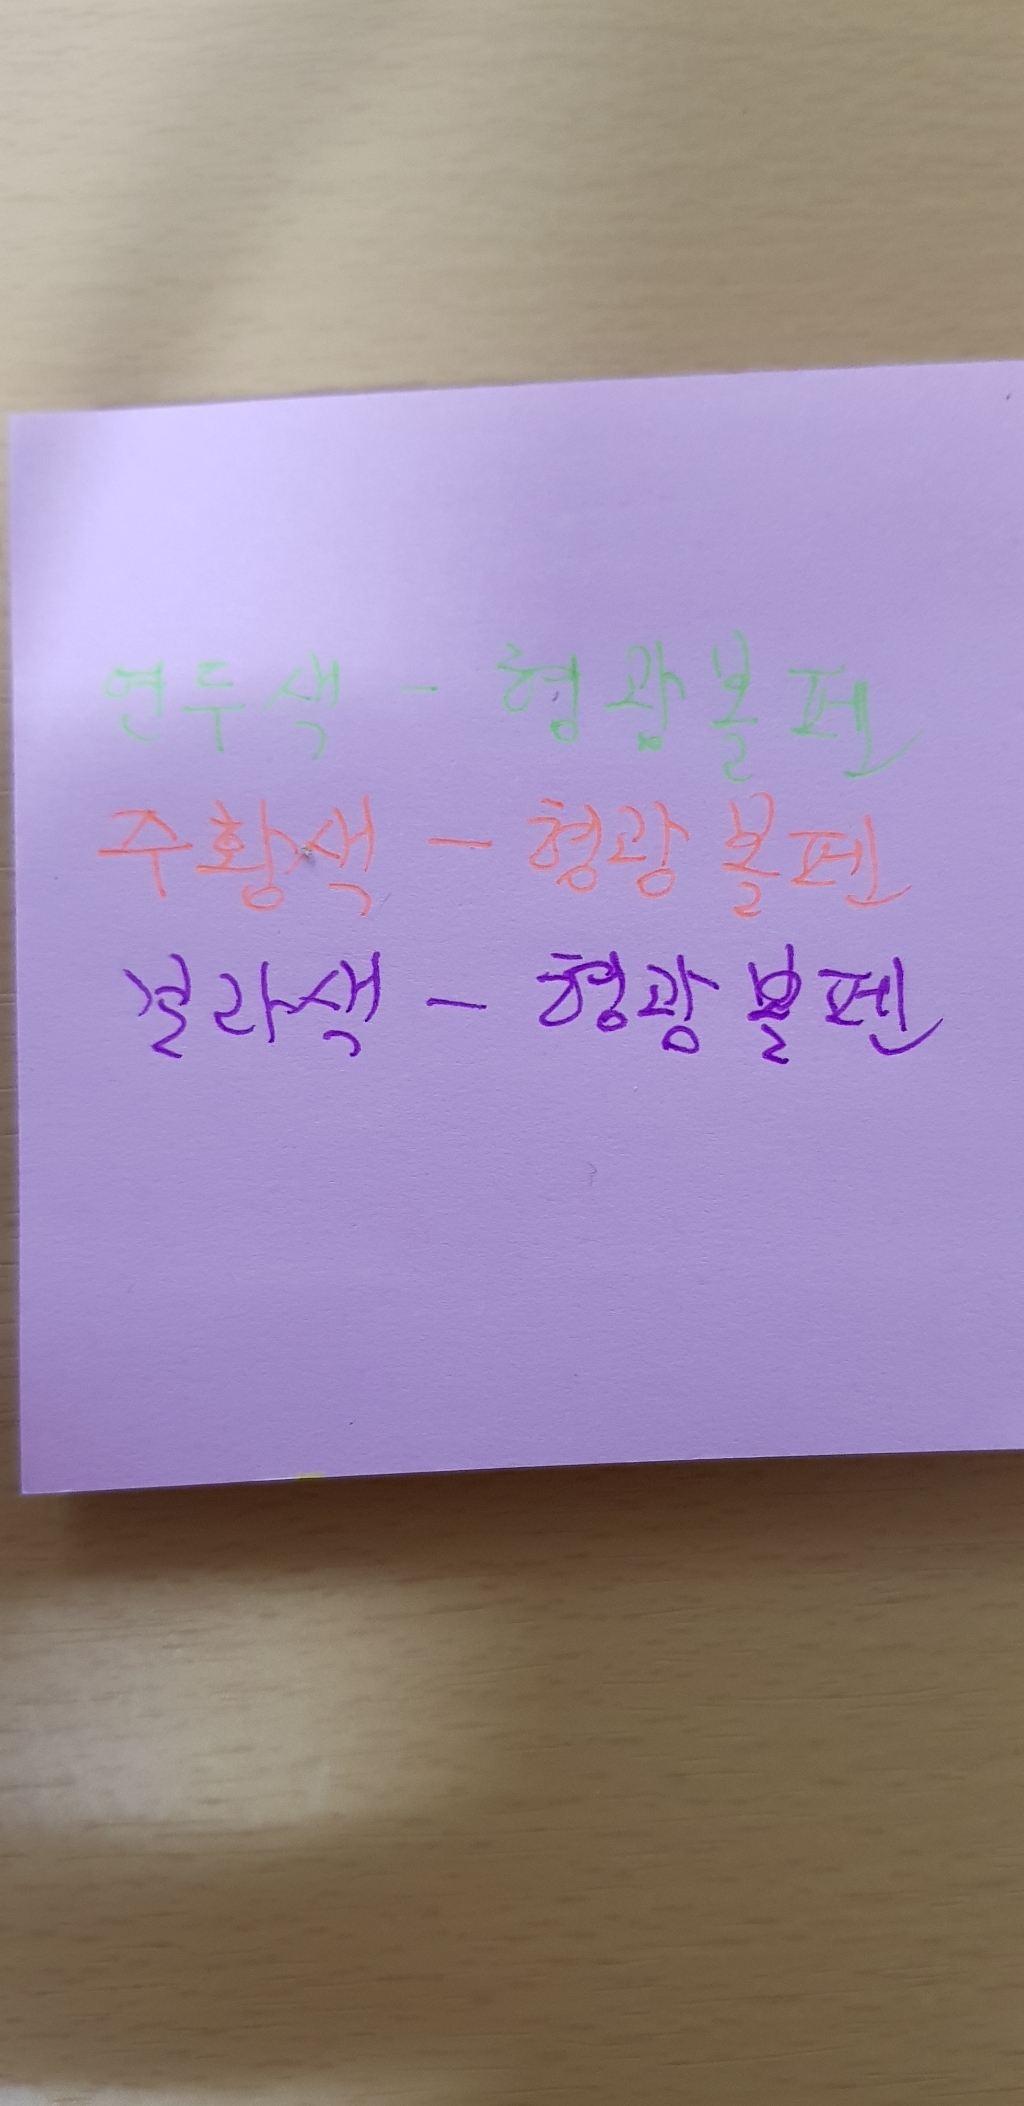 연두색 - 형광볼펜
주황색 - 형광볼펜
보라색 - 형광볼펜